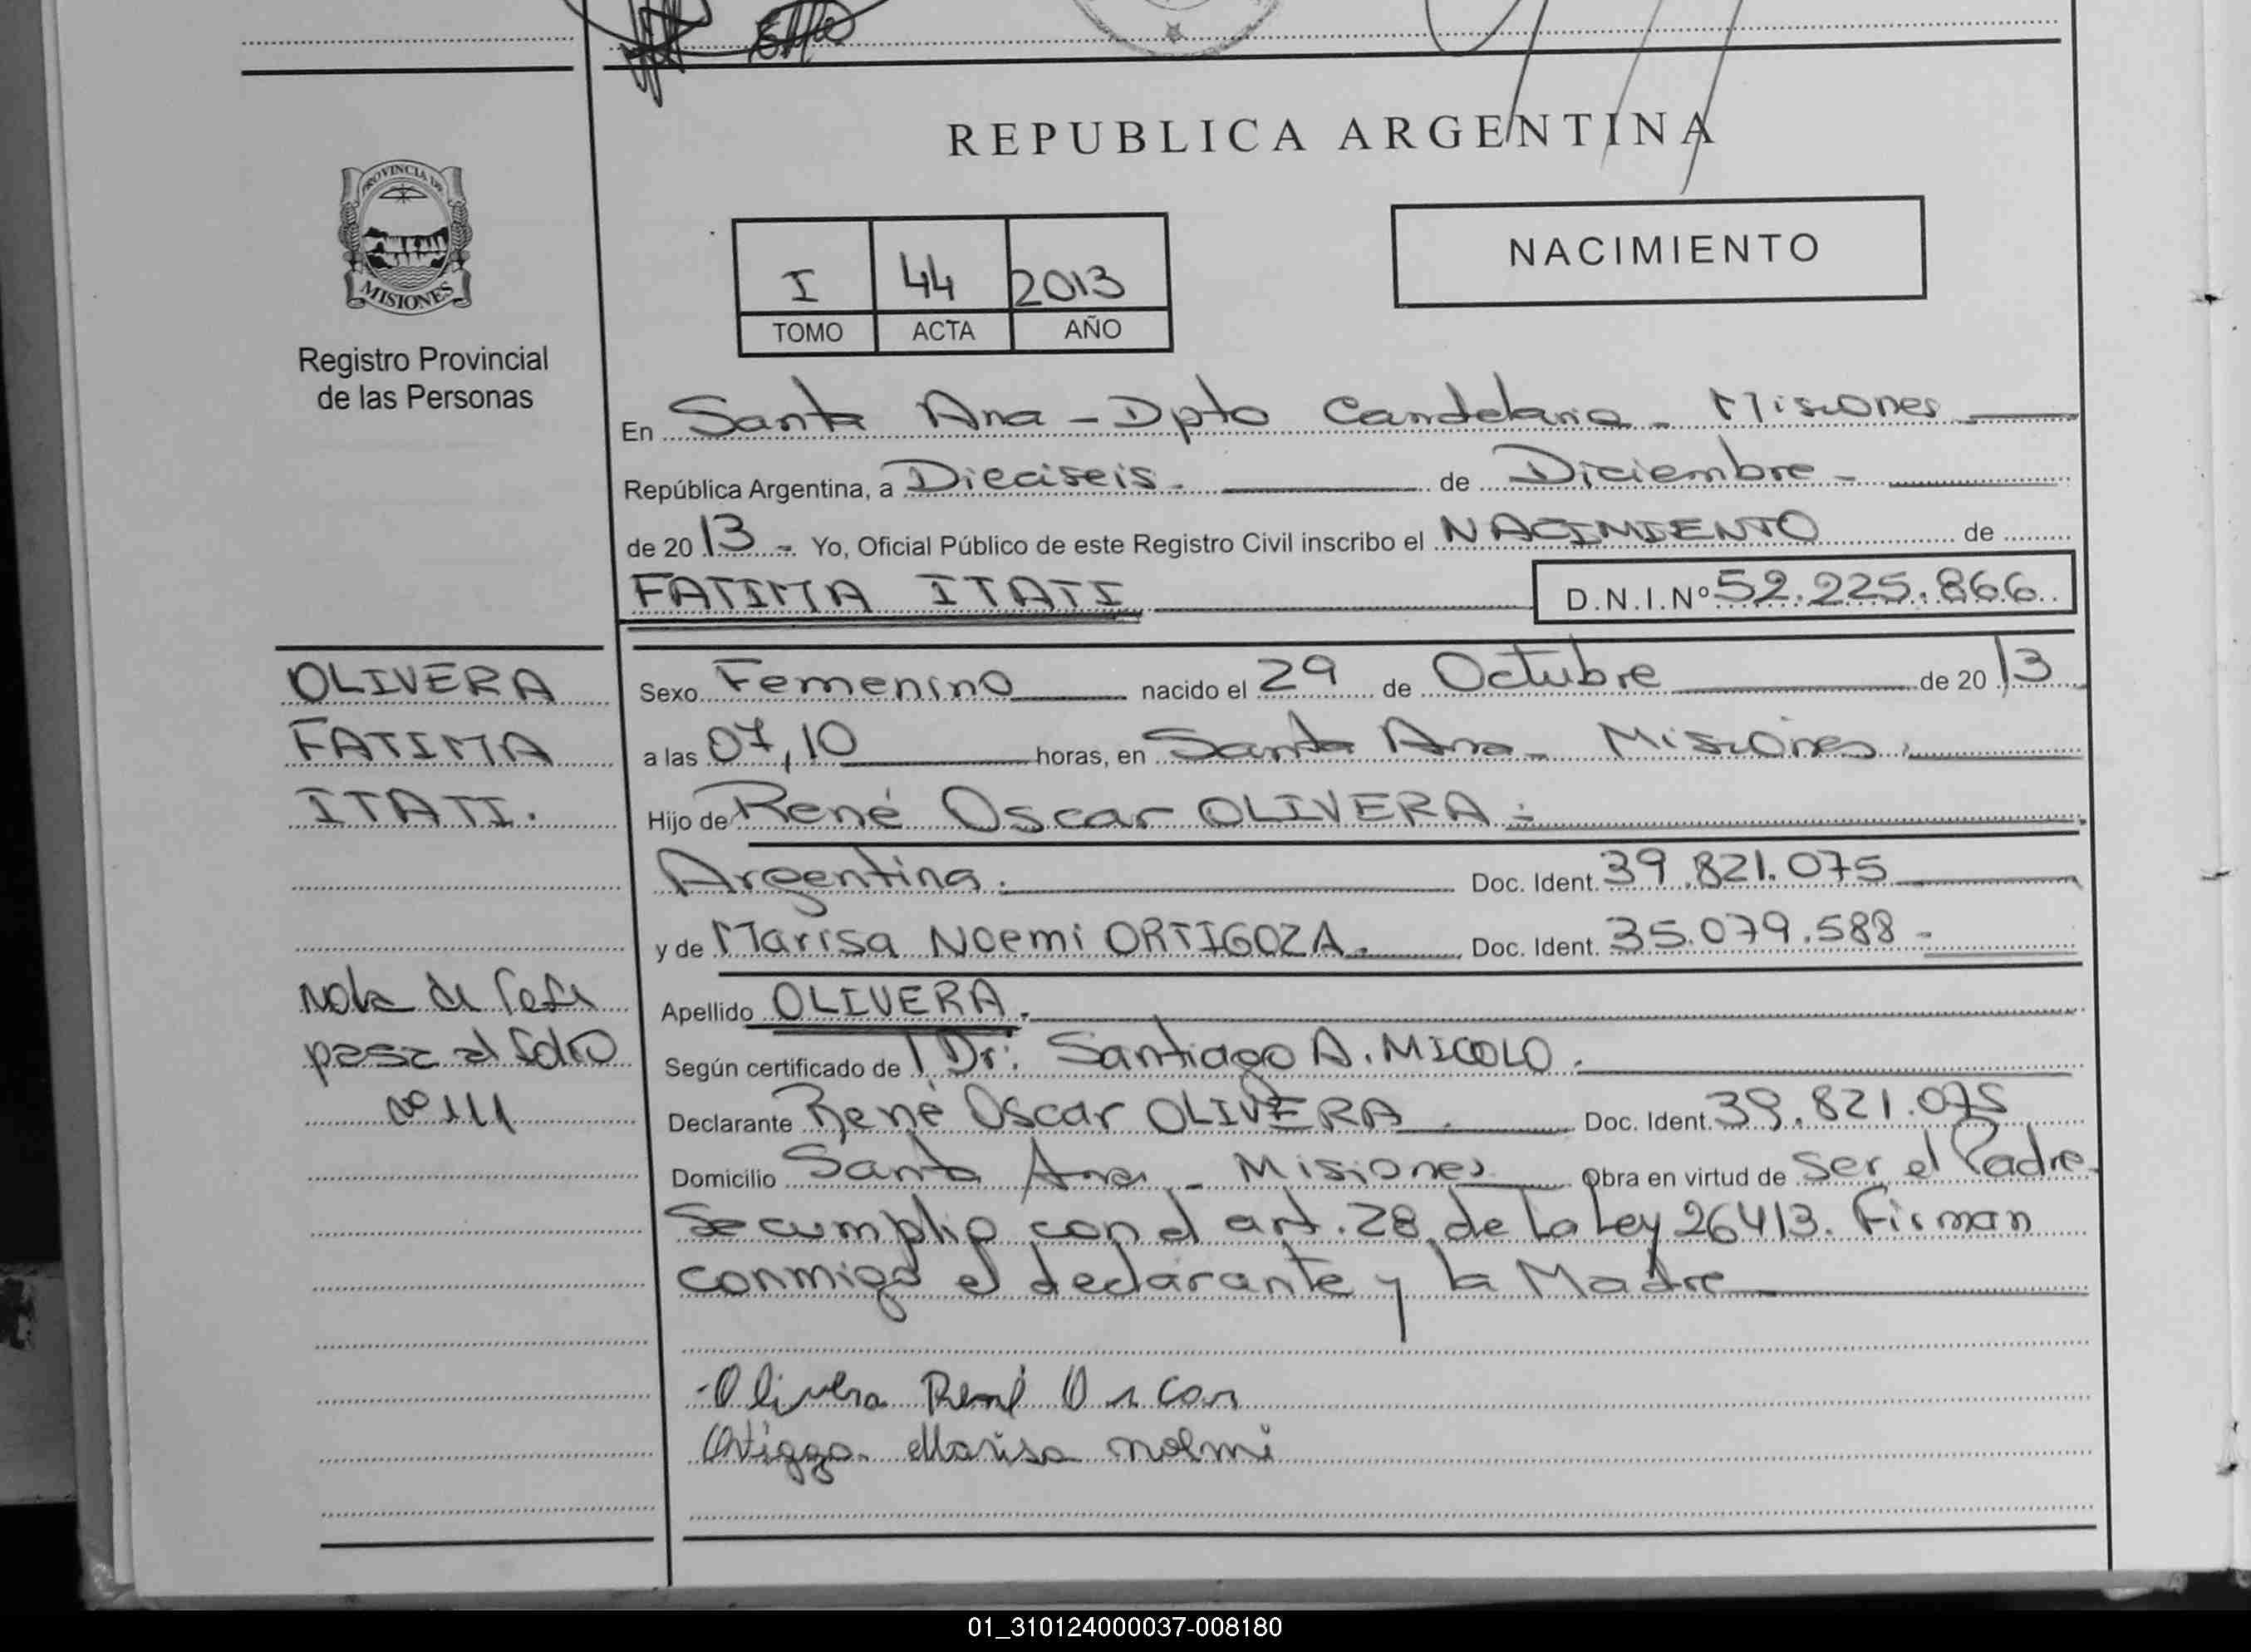 REPUBLICA ARGENTINA
PROVINCIA DE
MISIONES
Registro Provincial
de las Personas
I 44 2013
TOMO ACTA AÑO
NACIMIENTO
En Santa Ana - Dpto Candelaria - Misiones
República Argentina, a Dieciseis. de Diciembre -
de 20 13 - Yo, Oficial Público de este Registro Civil inscribo el NACIMIENTO de
FATIMA ITATI D.N.I.Nº 52.225.866
OLIVERA
FATIMA
ITATI.
Nota de
pasa al folio
Nº 111
Sexo Femenino nacido el 29 de Octubre de 20 13
a las 07,10 horas, en Santa Ana - Misiones.
Hijo de René Oscar OLIVERA -
Argentina. Doc. Ident. 39.821.075
y de Marisa Noemi ORTIGOZA. Doc. Ident. 35.079.588 -
Apellido OLIVERA.
Según certificado de Dr: Santiago A. MICOLO.
Declarante René Oscar OLIVERA. Doc. Ident. 39.821.075
Domicilio Santa Ana - Misiones Obra en virtud de ser el Padre.
Se cumplio con el art. 28 de La Ley 26413. Firman
conmigo el declarante y la Madre
- Olivera René Oscar
Ortigoza Marisa Noemi
01_310124000037-008180